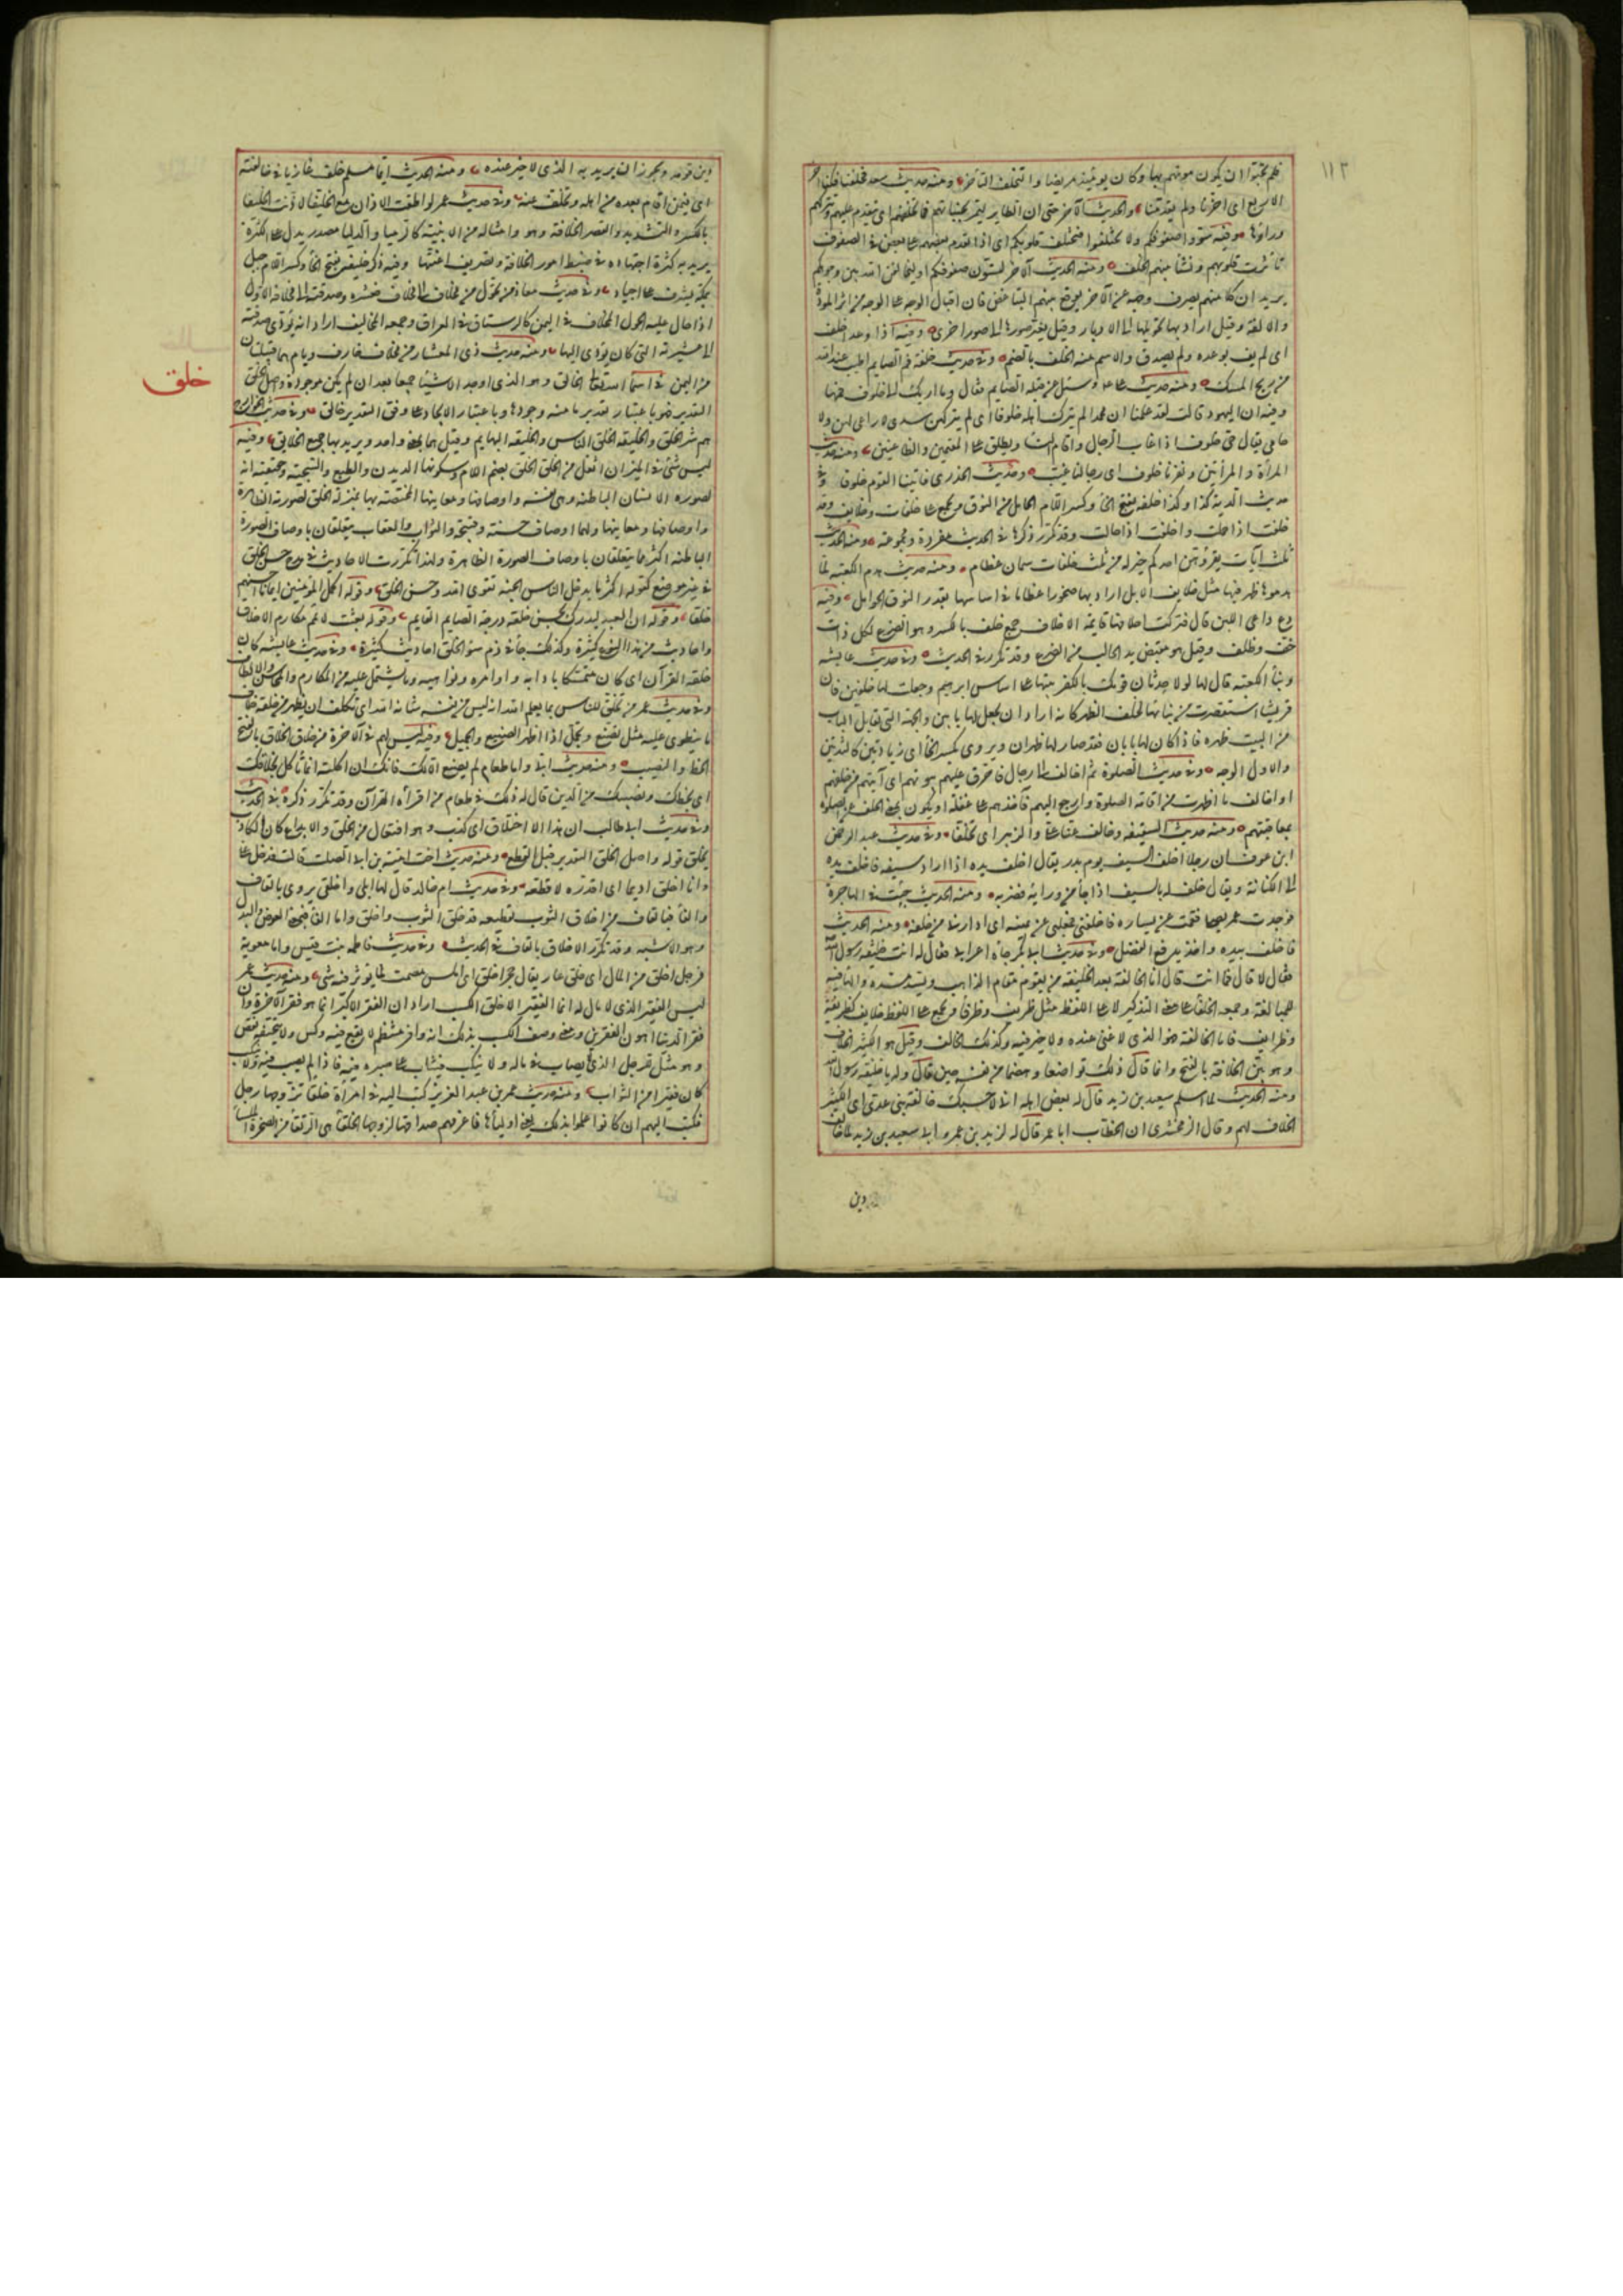 ١١٢
فلم يحبوا ان يكون موتهم بها وكان يومئذ مريضا والتخلف التأخر ومنه حديث سعد فخلفنا فكنا آخر
الاربع اى اخرنا ولم يقدمنا والحديث الآخر حتى ان الطاير ليمر بجنباتهم فما يخلفهم اى يتقدم عليهم ويتركهم
وراءها وفيه سووا صفوفكم ولا تختلفوا فتختلف قلوبكم اى اذا تقدم بعضهم على بعض فى الصفوف
تأثرت قلوبهم ونشأ بينهم الخلف ومنه الحديث الآخر لتسوّن صفوفكم او ليخالفن الله بين وجوهكم
يريد ان كلا منهم يصرف وجهه عن الآخر ويوقع بينهم التباغض فان اقبال الوجه على الوجه من اثر المودة
والالفة وقيل اراد بها تحويلها الى الادبار وقيل تغير صورها الى صور اخرى وفيه اذا وعد اخلف
اى لم يف بوعده ولم يصدق والاسم منه الخلف بالضم وفى حديث خلفة فم الصايم اطيب عند الله
من ريح المسك ومنه حديث على وسئل عن قبلة الصايم فقال وما اربك الى خلوف فمها
وفيه ان اليهود قالت لقد علمنا ان محمدا لم يترك اهله خلوفا اى لم يتركهن سدى لا راعى لهن ولا
حامى يقال حى خلوف اذا غاب الرجال واقام النسا ويطلق على المقيمين والظاعنين ومنه حديث
المرأة والمزادتين ونفرنا خلوف اى رجالنا غيب وحديث الخدرى فاتينا القوم خلوفا وفى
حديث الدية كذا وكذا خلفة بفتح الخا وكسر اللام الحامل من النوق وتجمع على خلفات وخلايف وقد
خلفت اذا حملت واخلفت اذا حالت وقد تكرر ذكرها فى الحديث مفردة ومجموعة ومنه الحديث
ثلث آيات يقرؤهن احدكم خير له من ثلث خلفات سمان عظام ومنه حديث هدم الكعبة لما
هدموها ظهر فيها مثل خلايف الابل اراد بها صخورا عظاما فى اساسها بقدر النوق الحوامل وفيه
دع داعى اللبن قال فتركت اخلافها قايمة الاخلاف جمع خلف بالكسر وهو الضرع لكل ذات
خف وظلف وقيل هو مقبض يد الحالب من الضرع وقد تكرر فى الحديث وفى حديث عايشة
وبنا الكعبة قال لها لولا حدثان قومك بالكفر بنيتها على اساس ابرهيم وجعلت لها خلفين فان
قريشا استقصرت من بنائها الخلف الظهر كانه اراد ان يجعل لها بابين والجهة التى تقابل الباب
من البيت ظهره فاذا كان لها بابان فقد صار لها ظهران ويروى بكسر الخا اى زيادتين كالثديين
والاول الوجه وفى حديث الصلوة ثم اخالف الى رجال فاحرق عليهم بيوتهم اى آتيهم من خلفهم
او اخالف ما اظهرت من اقامة الصلوة وارجع اليهم فآخذهم على غفلة او يكون بمعنى اتخلف عن الصلوة
بمعاقبتهم ومنه حديث السقيفة وخالف عنا على والزبير اى تخلفا وفى حديث عبد الرحمن
ابن عوف ان رجلا اخلف السيف يوم بدر يقال اخلف يده اذا اراد سيفه فاخلف يده
الى الكنانة ويقال خلف له بالسيف اذا جا من ورائه فضربه ومنه الحديث جئت فى الهاجرة
فوجدت عمر يصلى فقمت عن يساره فاخلفنى فجعلنى عن يمينه اى ادارنى من خلفه ومنه الحديث
فاخلف بيده واخذ يدفع الفضل وفى حديث ابى بكر جاه اعرابى فقال له انت خليفة رسول الله
فقال لا قال فما انت قال انا الخالفة بعده الخليفة من يقوم مقام الذاهب ويسد مسده والها فيه
للمبالغة وجمعه الخلفا على معنى التذكير لا على اللفظ مثل ظريف وظرفا ويجمع على اللفظ خلايف كظريفة
وظرايف فاما الخالفة فهو الذى لا غنى عنده ولا خير فيه وكذلك الخالف وقيل هو الكثير الخلاف
وهو بين الخلافة بالفتح وانما قال ذلك تواضعا وهضما من نفسه حين قال له يا خليفة رسول الله
ومنه الحديث لما اسلم سعيد بن زيد قال له بعض اهله انى لاحسبك خالفة بنى عدى اى الكثير
الخلاف لهم وقال الزمخشرى ان الخطاب ابا عمر قال له لزيد بن عمرو ابى سعيد بن زيد لما خالف
دين
دين قومه ويجوز ان يريد به الذى لا خير عنده ومنه الحديث ايما مسلم خلف غازيا فى خالفته
اى فيمن اقام بعده من اهله وتخلف عنه وفى حديث عمر لو اطقت الاذان مع الخليفا لاذنت الخليفا
بالكسر والتشديد والقصر الخلافة وهو وامثاله من الابنية كالرميا والدليلا مصدر يدل على الكثرة
يريد به كثرة اجتهاده فى ضبط امور الخلافة وتصريف اعنتها وفيه ذكر خليفة بفتح الخا وكسر اللام جبل
بمكة يشرف على اجياد وفى حديث معاذ من تحول من مخلاف الى مخلاف فعشره وصدقته الى مخلافه الاول
اذا حال عليه الحول المخلاف فى اليمن كالرستاق فى العراق وجمعه المخاليف اراد انه يؤدى صدقته
الى عشيرته التى كان يؤدى اليها ومنه حديث ذى المشعار من مخلاف خارف ويام هما قبيلتان
من اليمن فى اسما الله تعالى الخالق وهو الذى اوجد الاشيا جميعا بعد ان لم يكن موجودة واصل الخلق
خلق
التقدير فهو باعتبار تقدير ما منه وجودها وباعتبار الايجاد على وفق التقدير خالق وفى حديث الخوارج
هم شر الخلق والخليقة الخلق الناس والخليقة البهايم وقيل هما بمعنى واحد ويريد بها جميع الخلايق وفيه
ليس شئ فى الميزان اثقل من الخلق الخلق بضم اللام وسكونها الدين والطبع والسجية وحقيقته انه
لصورة الانسان الباطنة وهى نفسه واوصافها ومعانيها المختصة بها بمنزلة الخلق لصورته الظاهرة
واوصافها ومعانيها ولهما اوصاف حسنة وقبيحة والثواب والعقاب يتعلقان باوصاف الصورة
الباطنة اكثر مما يتعلقان باوصاف الصورة الظاهرة ولهذا تكررت الاحاديث فى مدح حسن الخلق
فى غير موضع كقوله اكثر ما يدخل الناس الجنة تقوى الله وحسن الخلق وقوله اكمل المؤمنين ايمانا احسنهم
خلقا وقوله ان العبد ليدرك بحسن خلقه درجة الصايم القايم وقوله بعثت لاتمم مكارم الاخلاق
واحاديث من هذا النوع كثيرة وكذلك جا فى ذم سوء الخلق احاديث كثيرة وفى حديث عايشة كان
خلقه القرآن اى كان متمسكا بادابه واوامره ونواهيه وما يشتمل عليه من المكارم والمحاسن والالطاف
وفى حديث عمر من تخلق للناس بما يعلم الله انه ليس من نفسه شانه الله اى تكلف ان يظهر من خلقه خلاف
ما ينطوى عليه مثل تصنع وتجمل اذا اظهر الصنيع والجميل وفيه ليس لهم فى الآخرة من خلاق الخلاق بالفتح
الحظ والنصيب ومنه حديث ابى واما طعام لم يصنع الا لك فانك ان اكلته انما تاكل بخلاقك
اى بحظك ونصيبك من الدين قال له ذلك فى طعام من اقرأه القرآن وقد تكرر ذكره فى الحديث
وفى حديث ابى طالب ان هذا الا اختلاق اى كذب وهو افتعال من الخلق والابداع كان الكاذب
يخلق قوله واصل الخلق التقدير قبل القطع ومنه حديث اخت امية بن ابى الصلت قالت فدخل على
وانا اخلق اديما اى اقدره لاقطعه وفى حديث ام خالد قال لها ابلى واخلقى يروى بالقاف
والفا فبالقاف من اخلاق الثوب تقطيعه قد خلق الثوب واخلق واما الفا فبمعنى العوض والبدل
وهو الاشبه وقد تكرر الاخلاق بالقاف فى الحديث وفى حديث فاطمة بنت قيس واما معوية
فرجل اخلق من المال اى خلو عار يقال حجر اخلق اى املس مصمت لا يؤثر فيه شى ومنه حديث عمر
ليس الفقير الذى لا مال له انما الفقير الاخلق الكسب اراد ان الفقر الاكبر انما هو فقر الآخرة وان
فقر الدنيا اهون الفقرين ومعنى وصف الكسب بذلك انه وافر منتظم لا يقع فيه وكس ولا يتحيفه نقص
وهو مثل للرجل الذى لا يصاب فى ماله ولا ينكب فيثاب على صبره فيه فاذا لم يصب فيه ولم ينكب
كان فقيرا من الثواب ومنه حديث عمر بن عبد العزيز كتب اليه فى امرأة خلقا تزوجها رجل
فكتب اليهم ان كانوا علموا بذلك يعنى اوليأها فاغرمهم صداقها لزوجها الخلقا هى الرتقا من الصخرة الملسا